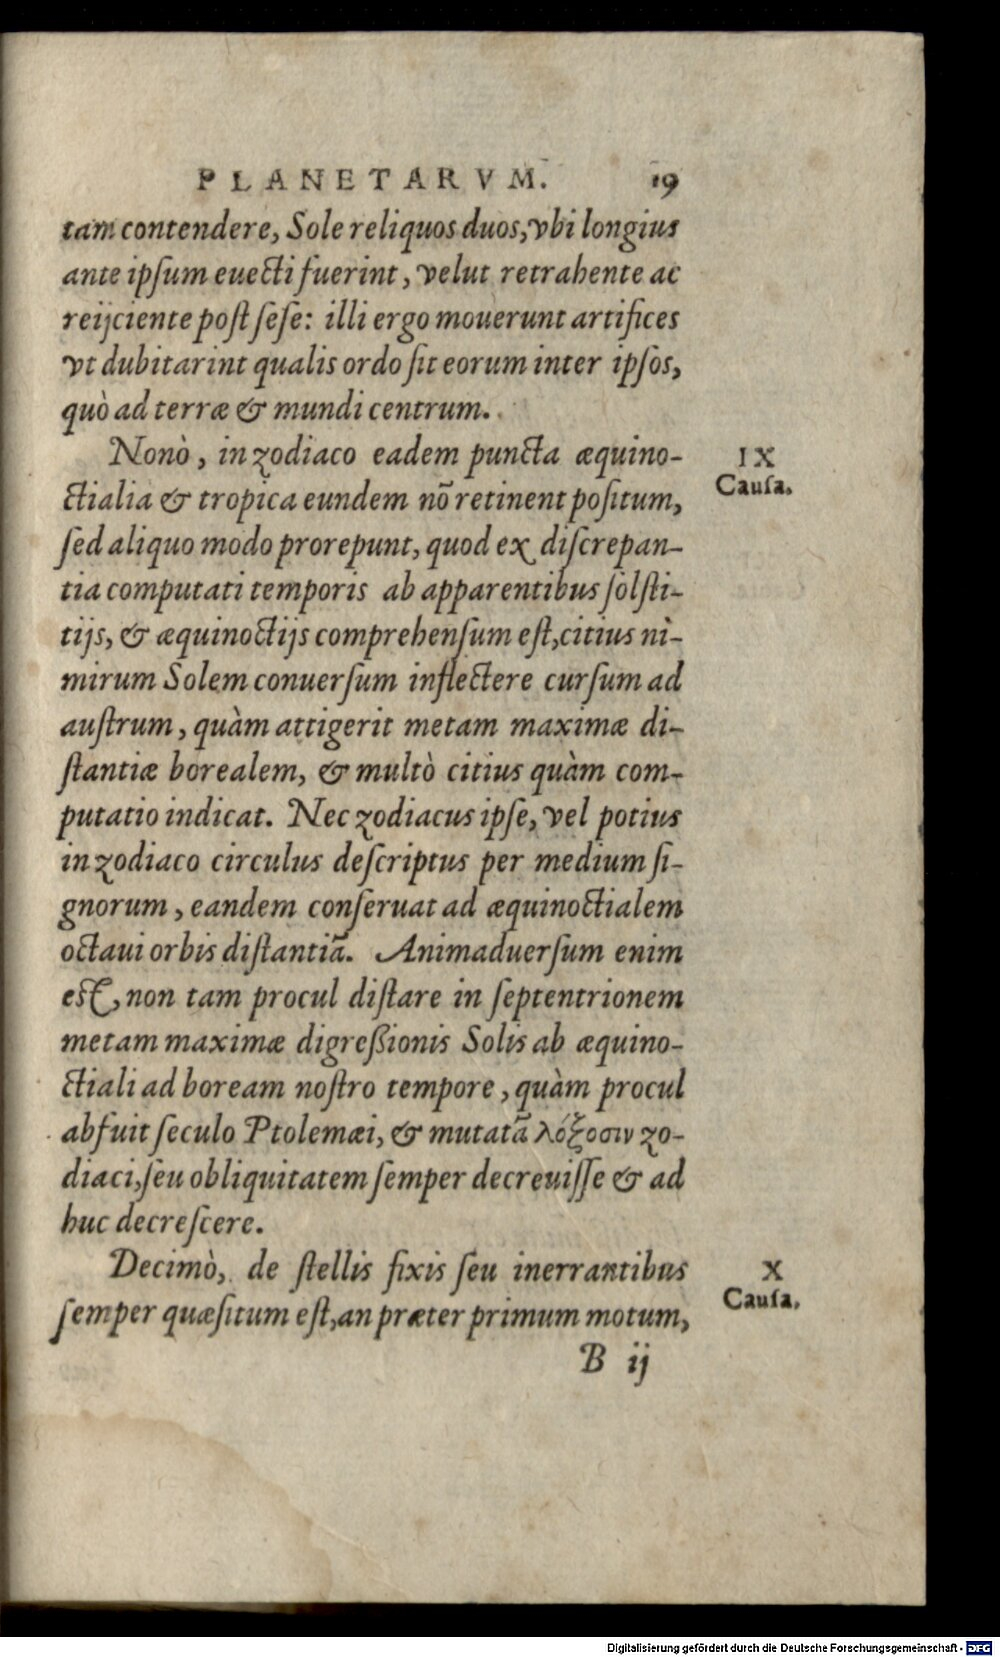 PLANETARVM. 19
tam contendere, Sole reliquos duos, vbi longius
ante ipſum euecti fuerint, velut retrahente ac
reijciente poſt ſeſe: illi ergo mouerunt artifices
vt dubitarint qualis ordo ſit eorum inter ipſos,
quò ad terræ & mundi centrum.
Nonò, in zodiaco eadem puncta æquino-
IX
Cauſa.
ctialia & tropica eundem nõ retinent poſitum,
ſed aliquo modo prorepunt, quod ex diſcrepan-
tia computati temporis ab apparentibus ſolſti-
tijs, & æquinoctijs comprehenſum eſt, citius nì-
mirum Solem conuerſum inflectere curſum ad
auſtrum, quàm attigerit metam maximæ di-
ſtantiæ borealem, & multò citius quàm com-
putatio indicat. Nec zodiacus ipſe, vel potius
in zodiaco circulus deſcriptus per medium ſi-
gnorum, eandem conſeruat ad æquinoctialem
octaui orbis diſtantiã. Animaduerſum enim
eſt, non tam procul diſtare in ſeptentrionem
metam maximæ digreßionis Solis ab æquino-
ctiali ad boream noſtro tempore, quàm procul
abfuit ſeculo Ptolemæi, & mutatã λόξοσιν zo-
diaci, ſeu obliquitatem ſemper decreuiſſe & ad
huc decreſcere.
Decimò, de ſtellis fixis ſeu inerrantibus
X
Cauſa.
ſemper quæſitum eſt, an præter primum motum,
B ij
Digitalisierung gefördert durch die Deutsche Forschungsgemeinschaft - DFG